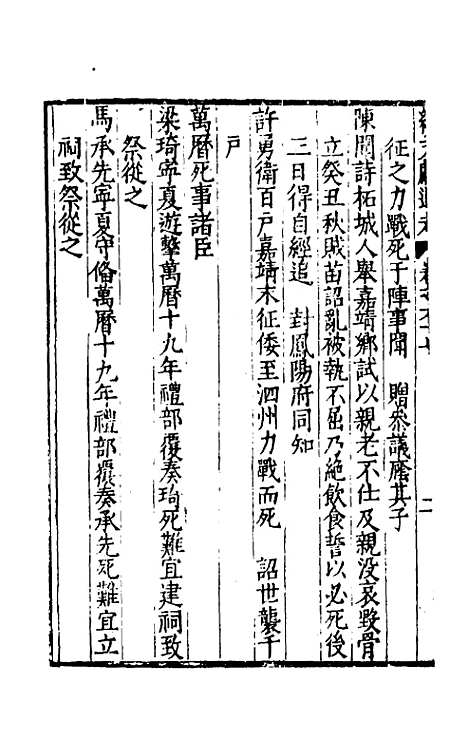 征之力戰死于陣事聞 贈參議廕其子
陳聞詩柘城人舉嘉靖鄉試以親老不仕及親没哀毀骨
立癸丑秋賊苗詔亂被執不屈乃絕飲食誓以必死後
三日得自經追 封鳳陽府同知
許勇衛百戶嘉靖末征倭至泗州力戰而死 詔世襲千
戶
萬曆死事諸臣
梁琦寧夏遊擊萬曆十九年禮部覆奏琦死難宜建祠致
祭從之
馬承先寧夏守備萬曆十九年禮部覆奏承先死難宜立
祠致祭從之